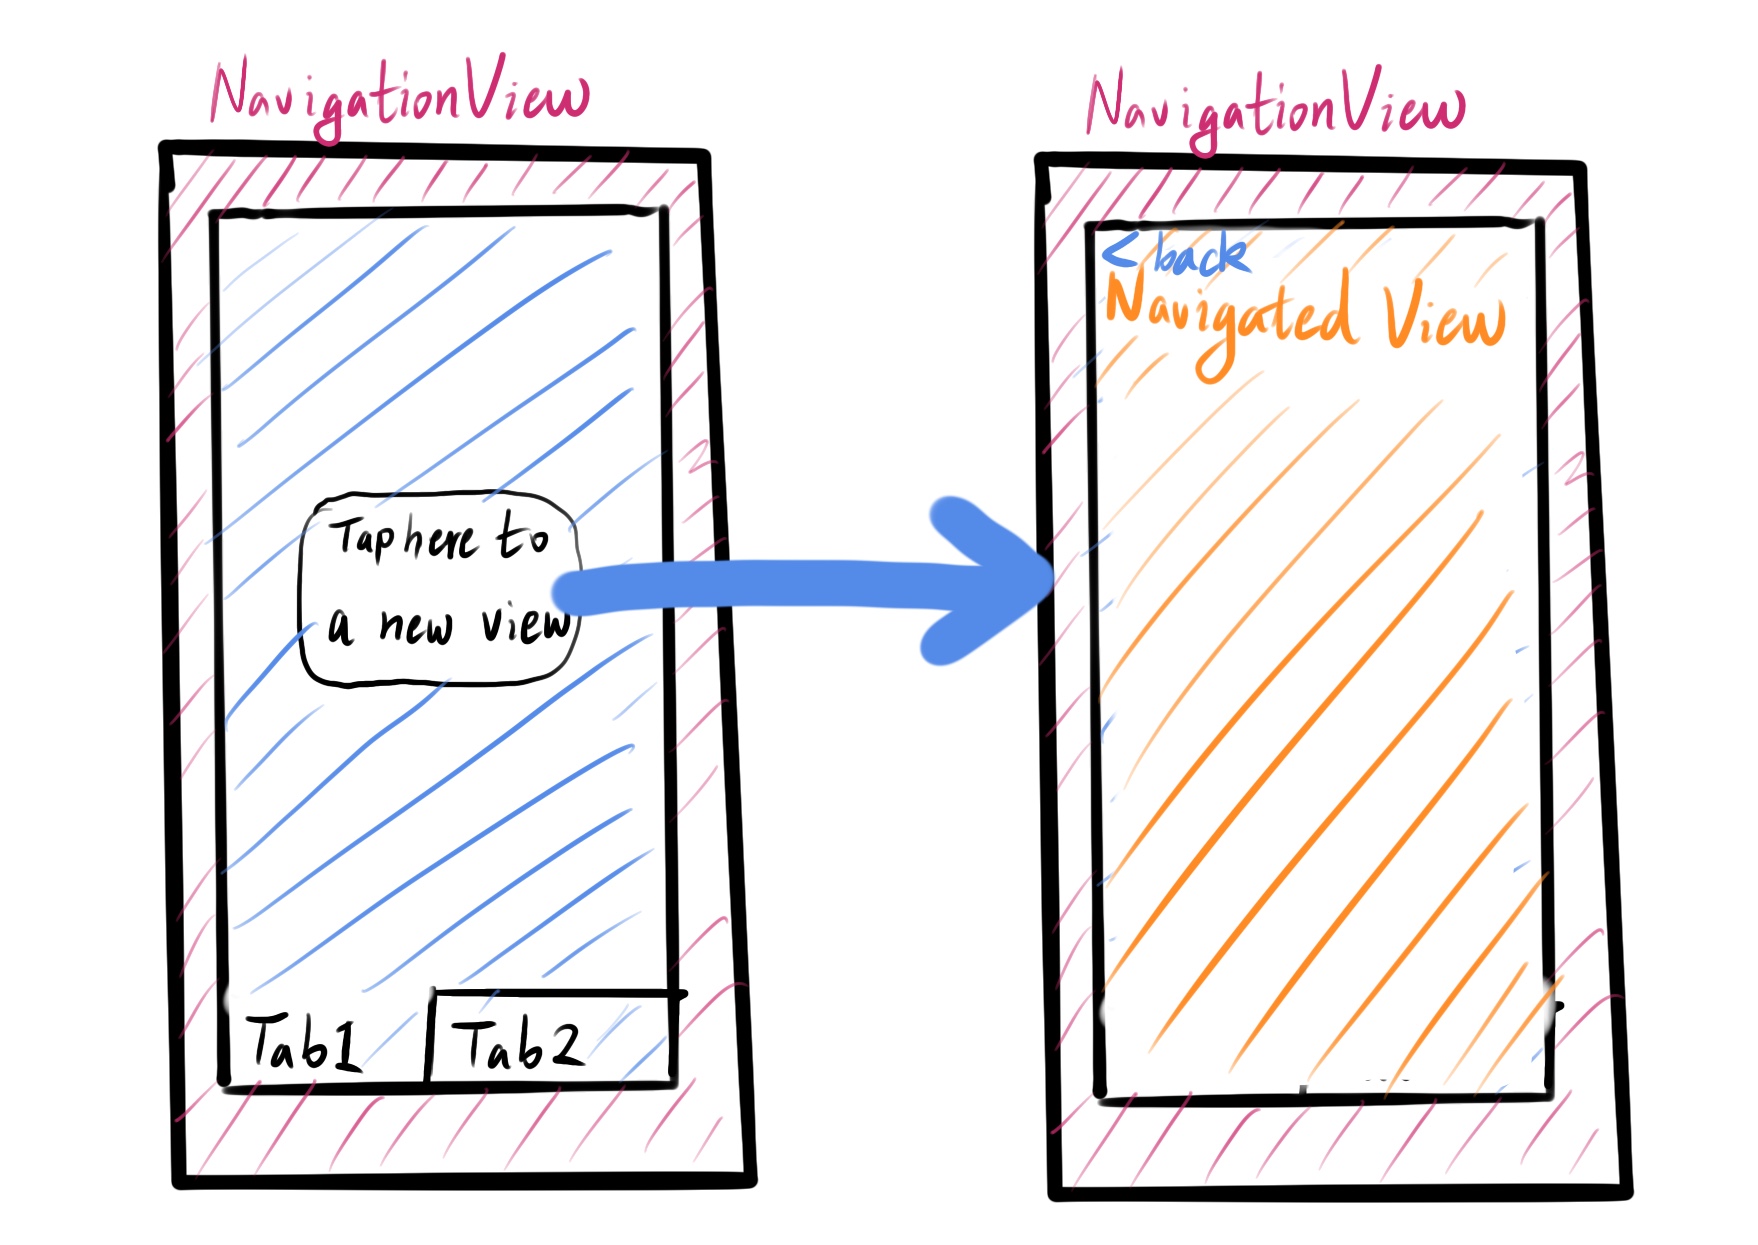 NavigationView
Tap here to
a new view
Tab1
Tab2
NavigationView
< back
Navigated View